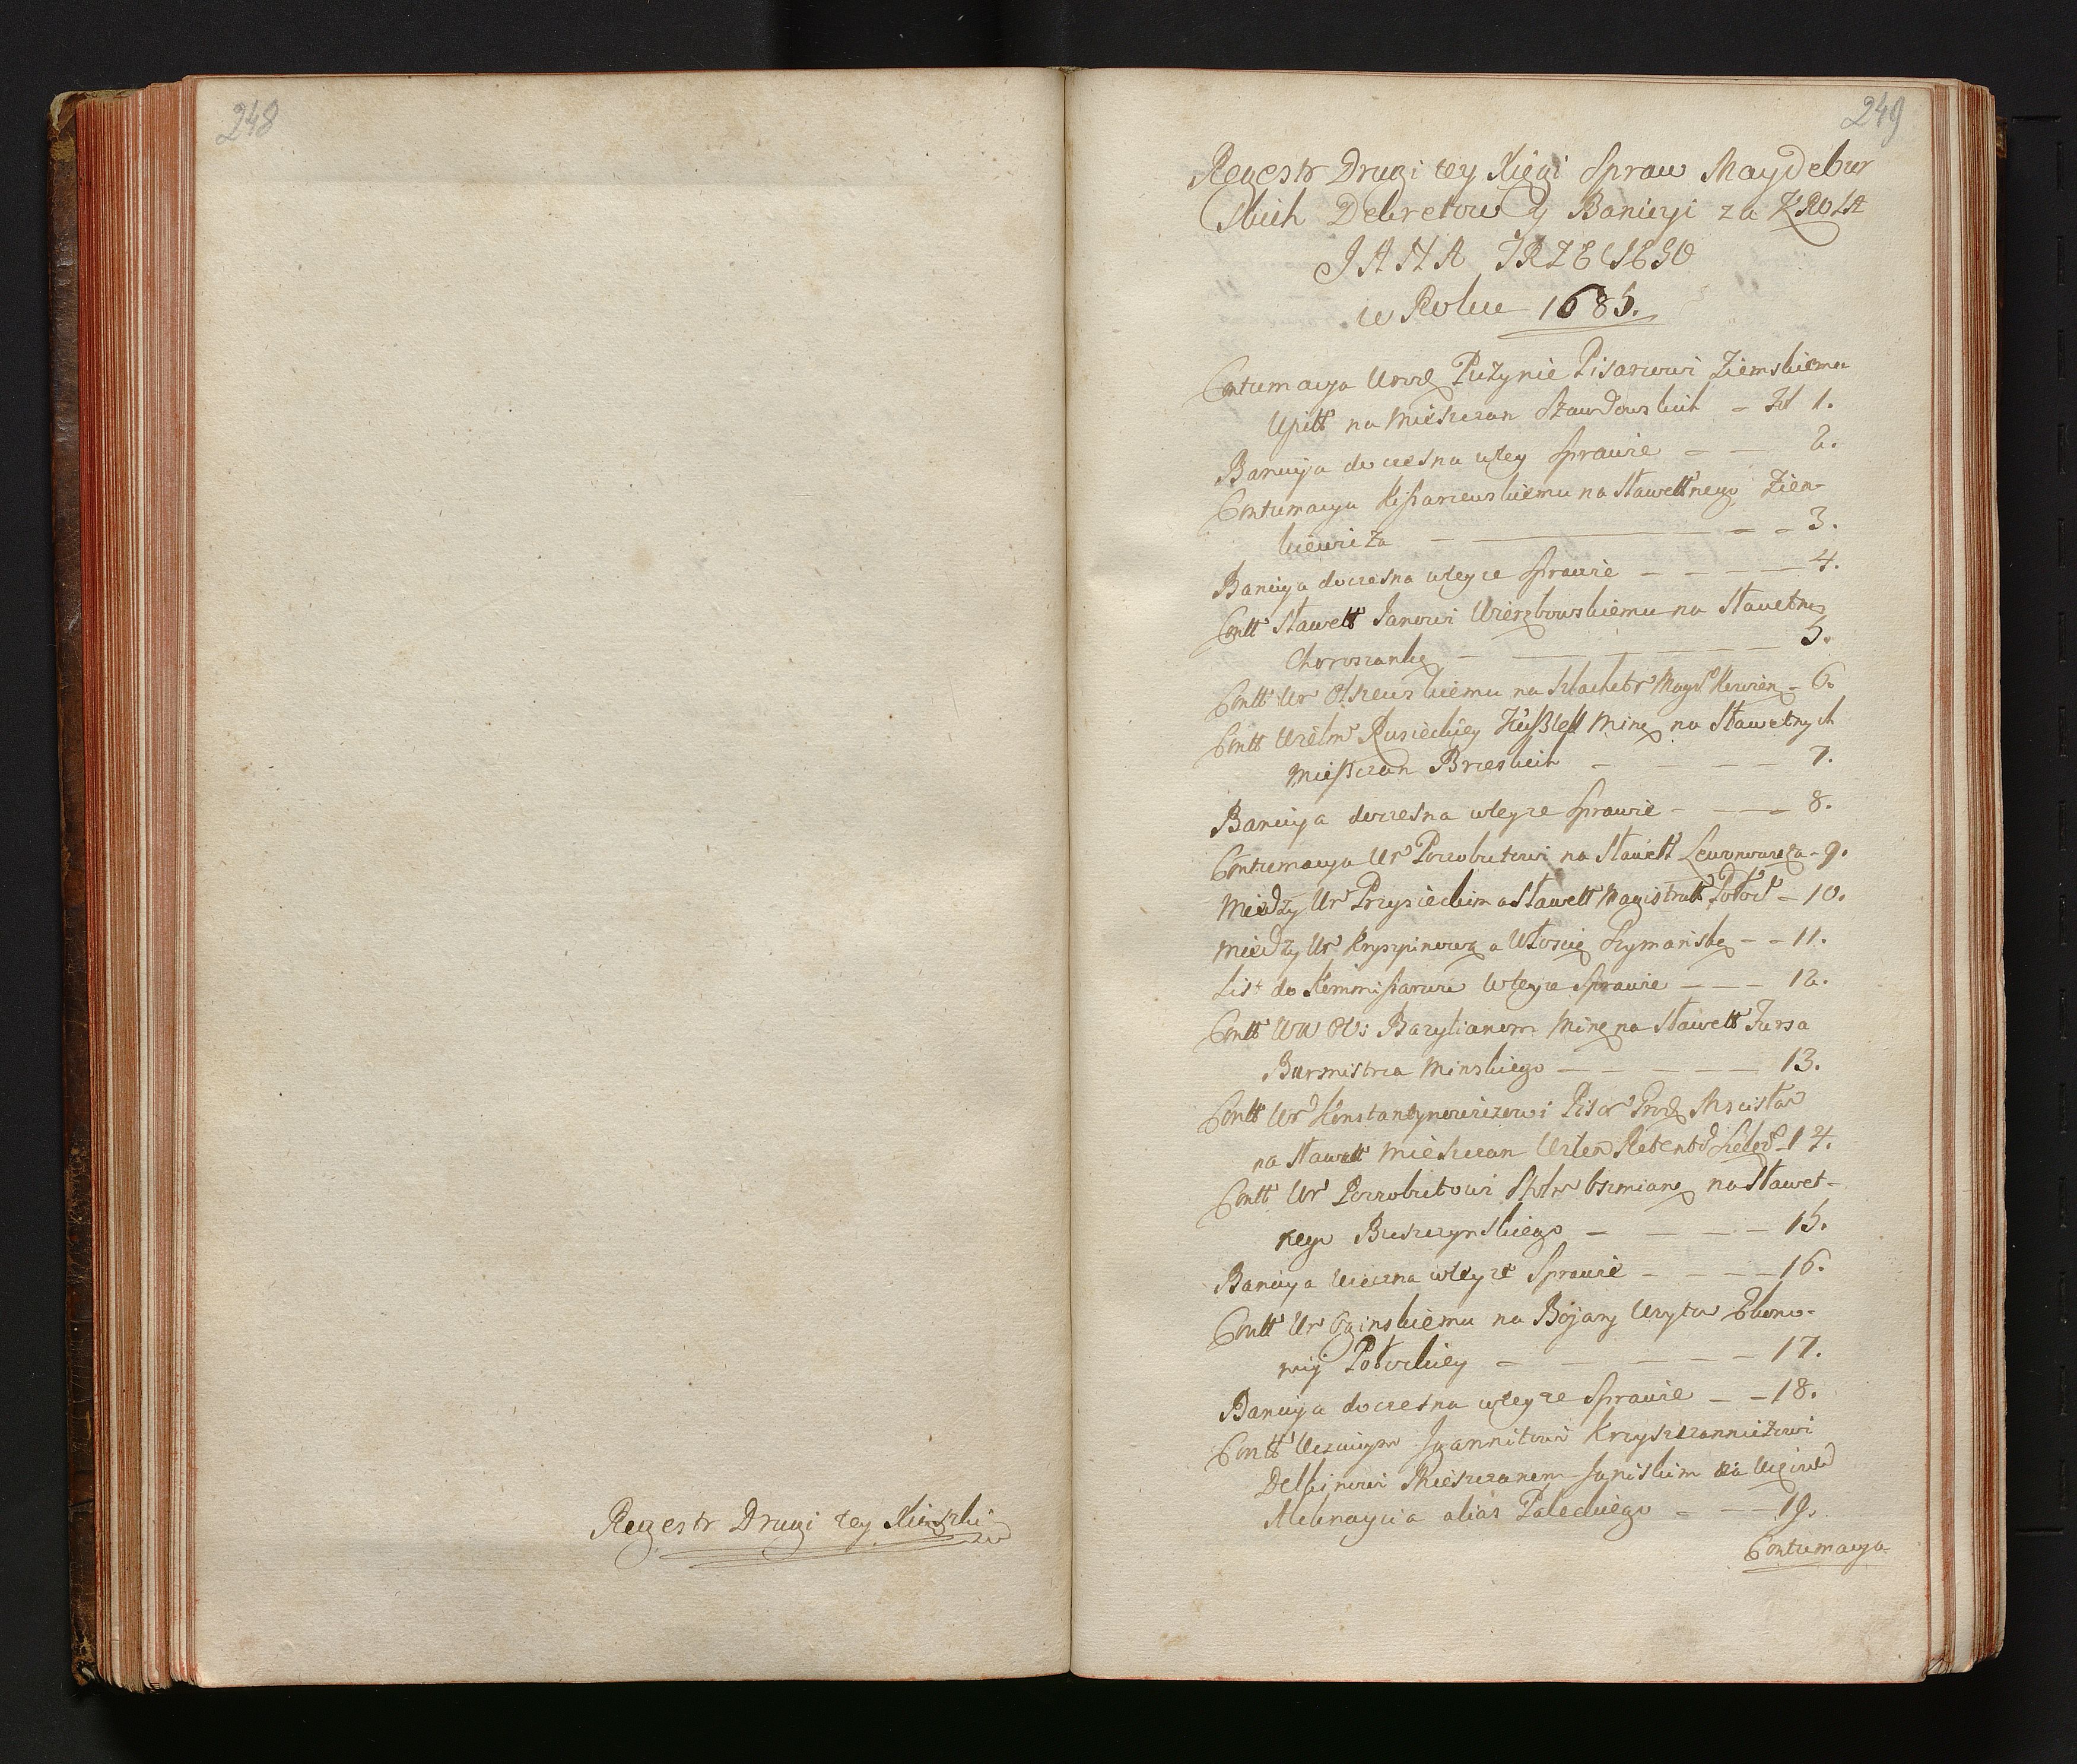 248
Regestr Drugi tey Xiązki
249
Regestr Drugi tey Xięgi Spraw Maydebur
skich Dekretow y Banicyi za KROLA
JANA TRZECIEGO
w Roku 1685.
Contumacya Urod Puzynie Pisarzowi Ziemskiemu
Upitt na Mieszczan Szawdowskich – Fol 1.
Banicya doczesna wtey Sprawie – — 2.
Contumacya Kiszarzewskiemu na Sławettnego Zien-
kiewicza – — – – 3.
Banicya doczesna wteyze Sprawie – – – — 4.
Contt Sławett Janowi Wierzbowskiemu na Sławetną
Choroszankę – — 5.
Contt Ur Olszewskiemu na Szlachetr Magd – 6.
Contt Wielm Rusieckiey Minę na Sławetnych
Mieszczan Brzeskich – – – — 7.
Banicya doczesna wteyze Sprawie – — – 8.
Contumacya Ur Poczobutowi na Sławett Lewonowicza – 9.
Między Ur Przysieckim a Sławett Magistratt Połoc – 10.
Między Ur Kryszpinową a Włoscią Szymańską – – 11.
List do Kommissarzow wteyze Sprawie – — – 12.
Contt WW OO: Bazylianom Minę na Sławett Fursa
Burmistrza Minskiego — – – – — 13.
Contt Ur Konstantynowiczowi Pisar Grodz Mscisław
na Sławett Mieszczan 14.
Contt Ur Poczobutowi Stoln Oszmianę na Sławet-
nego Buszczynskiego – — – – 15.
Banicya Wieczna wteyze Sprawie – – — – 16.
Contt Ur Oginskiemu na Bojary Uszyta Ekono-
mij Połockiey – – – – — 17.
Banicya doczesna wteyze Sprawie – – 18.
Contt Krzyszczannizowi
Mieszczanom
alias Paleckiego – — 19.
Contumacya